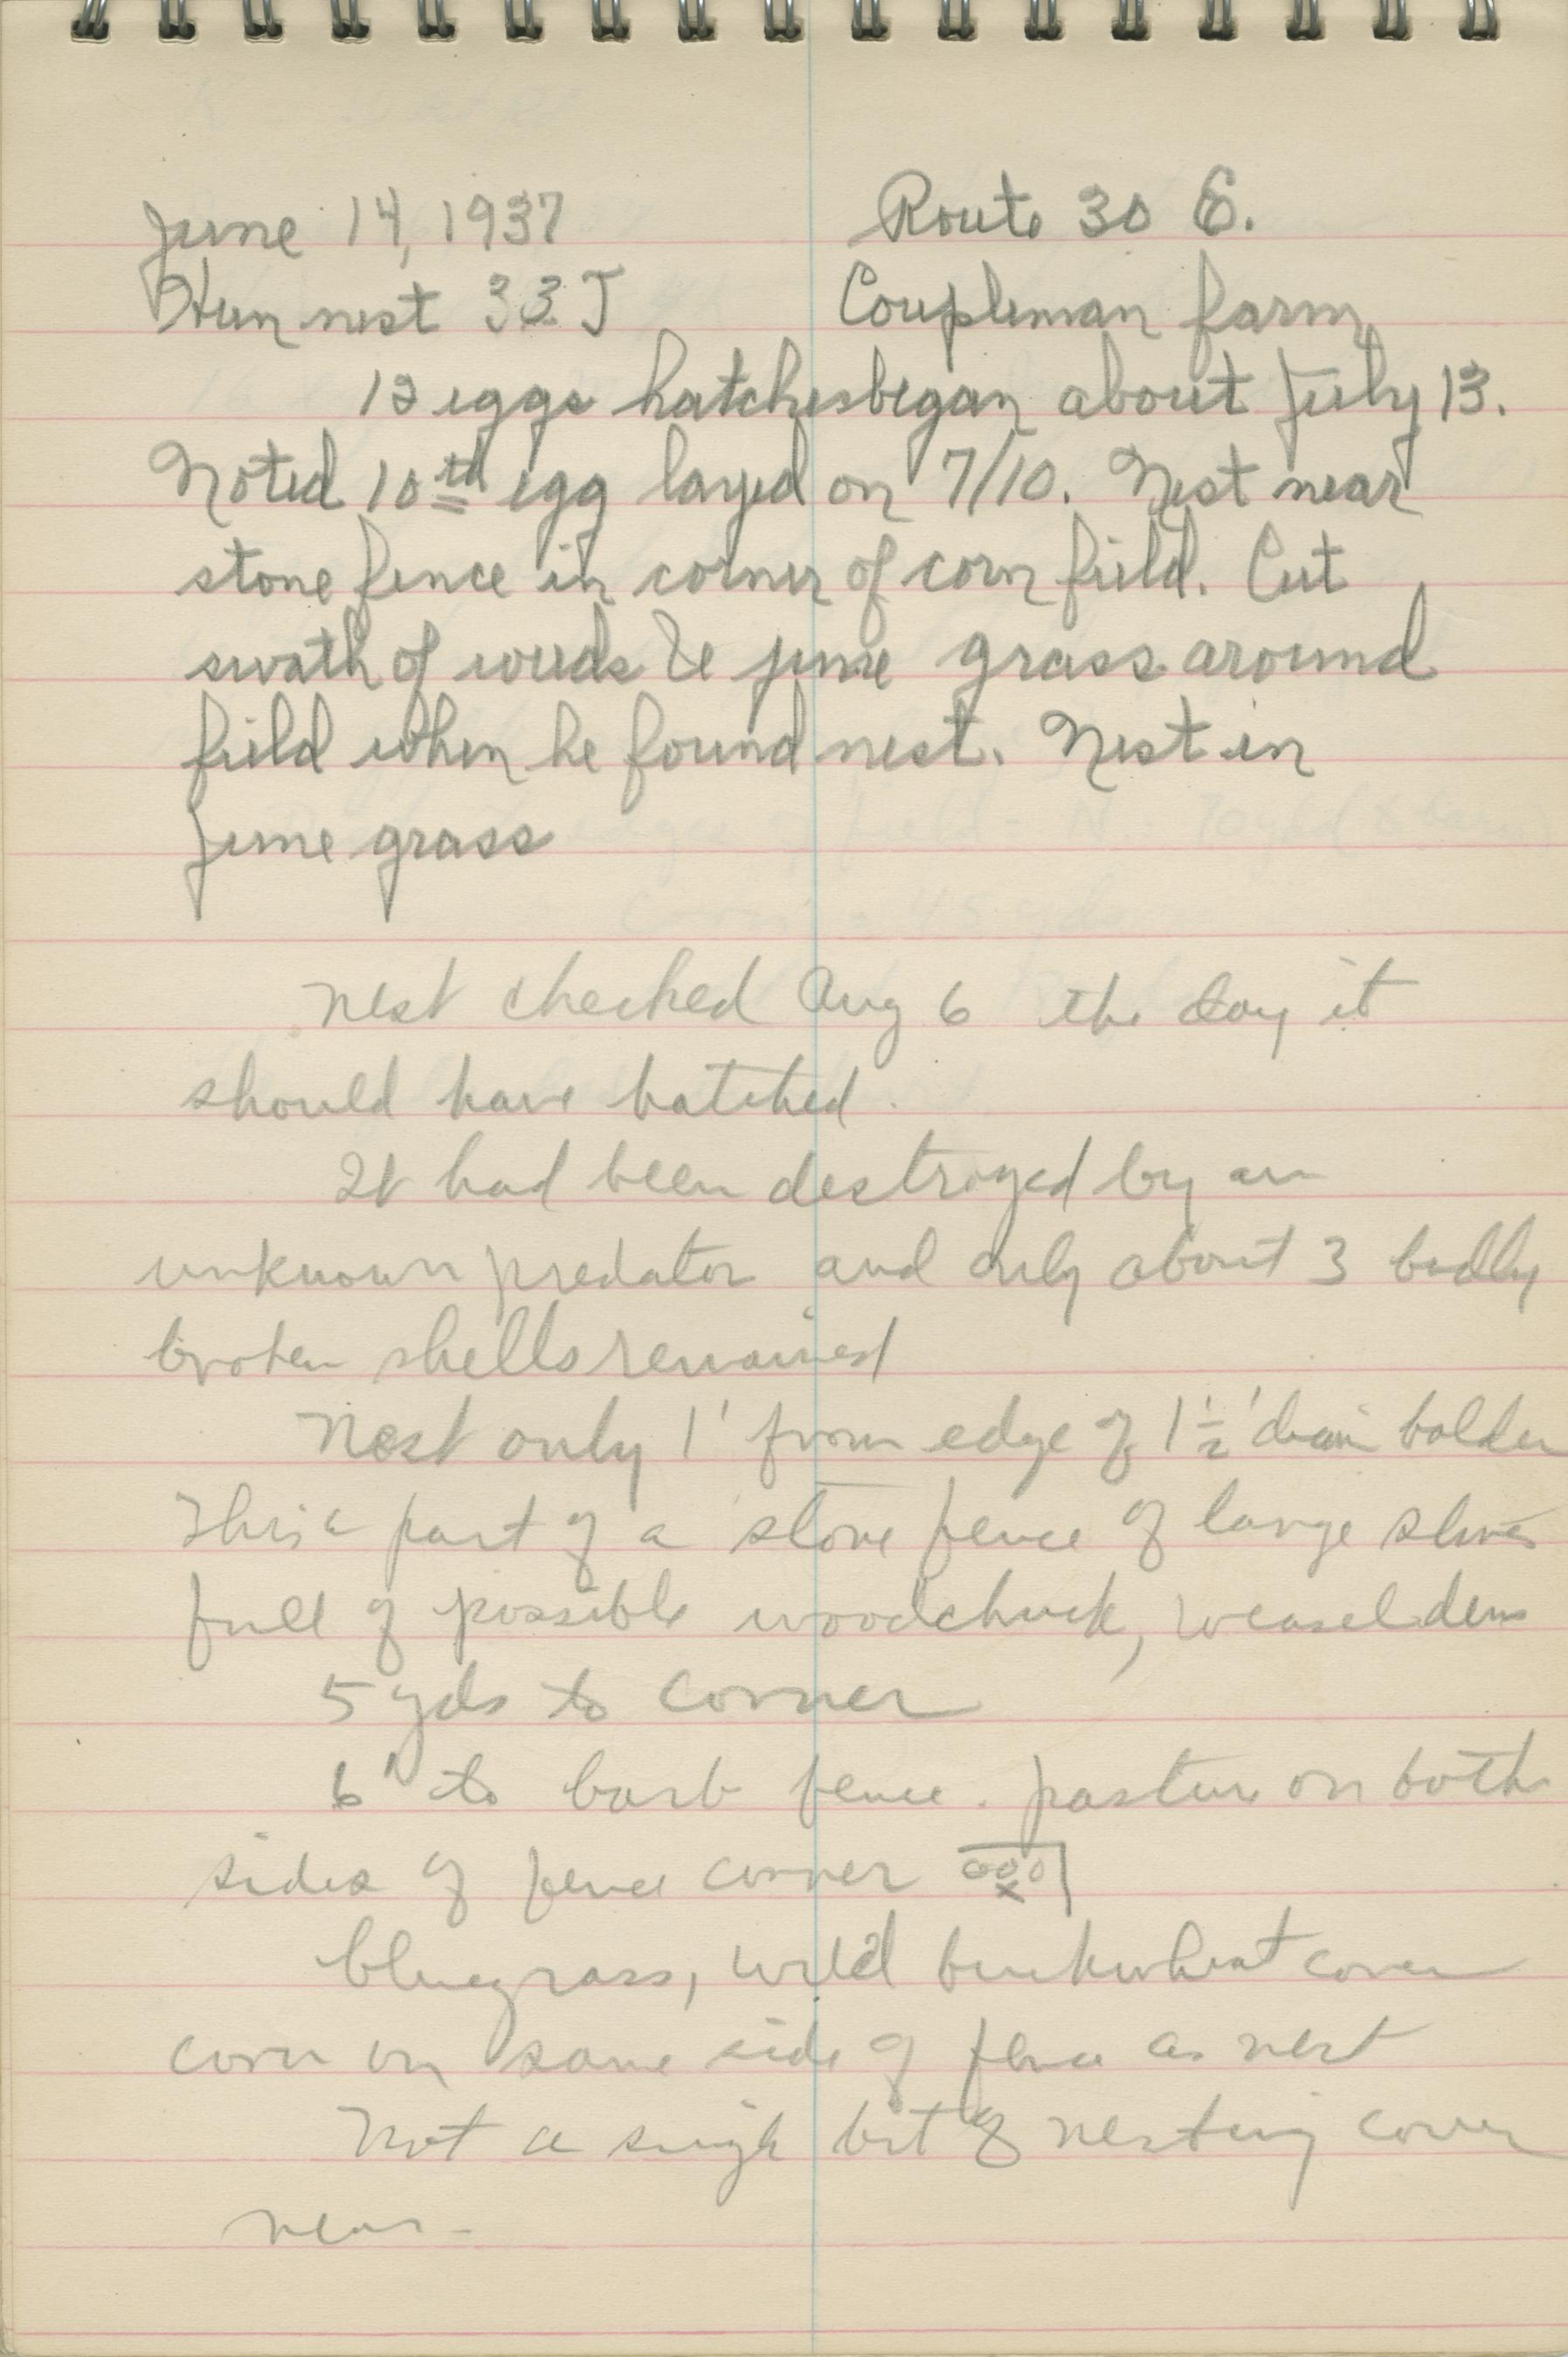 June 14, 1937 Route 30 E.
Hun nest 33 J Coupleman farm
13 eggs hatches began about July 13.
Noted 10th egg layed on 7/10. Nest near
stone fence in corner of corn field. Cut
swath of weeds & june grass around
field when he found nest. Nest in
June grass
Nest checked Aug 6 the day it
should have hatched.
It had been destroyed by an
unknown predator and only about 3 badly
broken shells remained
Nest only 1' from edge of 1½' diam bolder
This a part of a stone fence of large stones
full of possible woodchuck, weasel dens
5 yds to corner
6' to barb fence. pasture on both
sides of fence corner
bluegrass, wild buckwheat cover
corn on same side of fence as nest
Not a single bit of nesting cover
near-